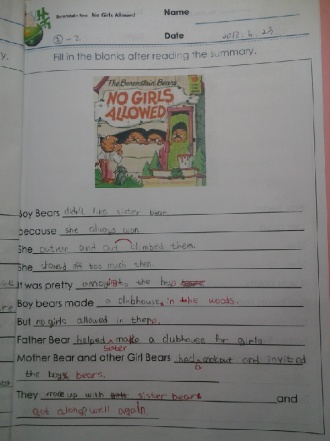 Berenstain Bears No Girls Allowed
Name
①-2
Date 2012. 6. 23
Fill in the blanks after reading the summary.
The Berenstain Bears
NO GIRLS
ALLOWED
Boy Bears didn't like sister bear
because she always won.
She outran and out climbed them.
She showed off too much then.
It was pretty annoying to the boys
Boy bears made a clubhouse in the woods.
But no girls allowed in there.
Father Bear helped make a clubhouse for girls.
Sister
Mother Bear and other Girl Bears had a cookout and invited
the boys bears.
They made up with sister bears and
got along well again.